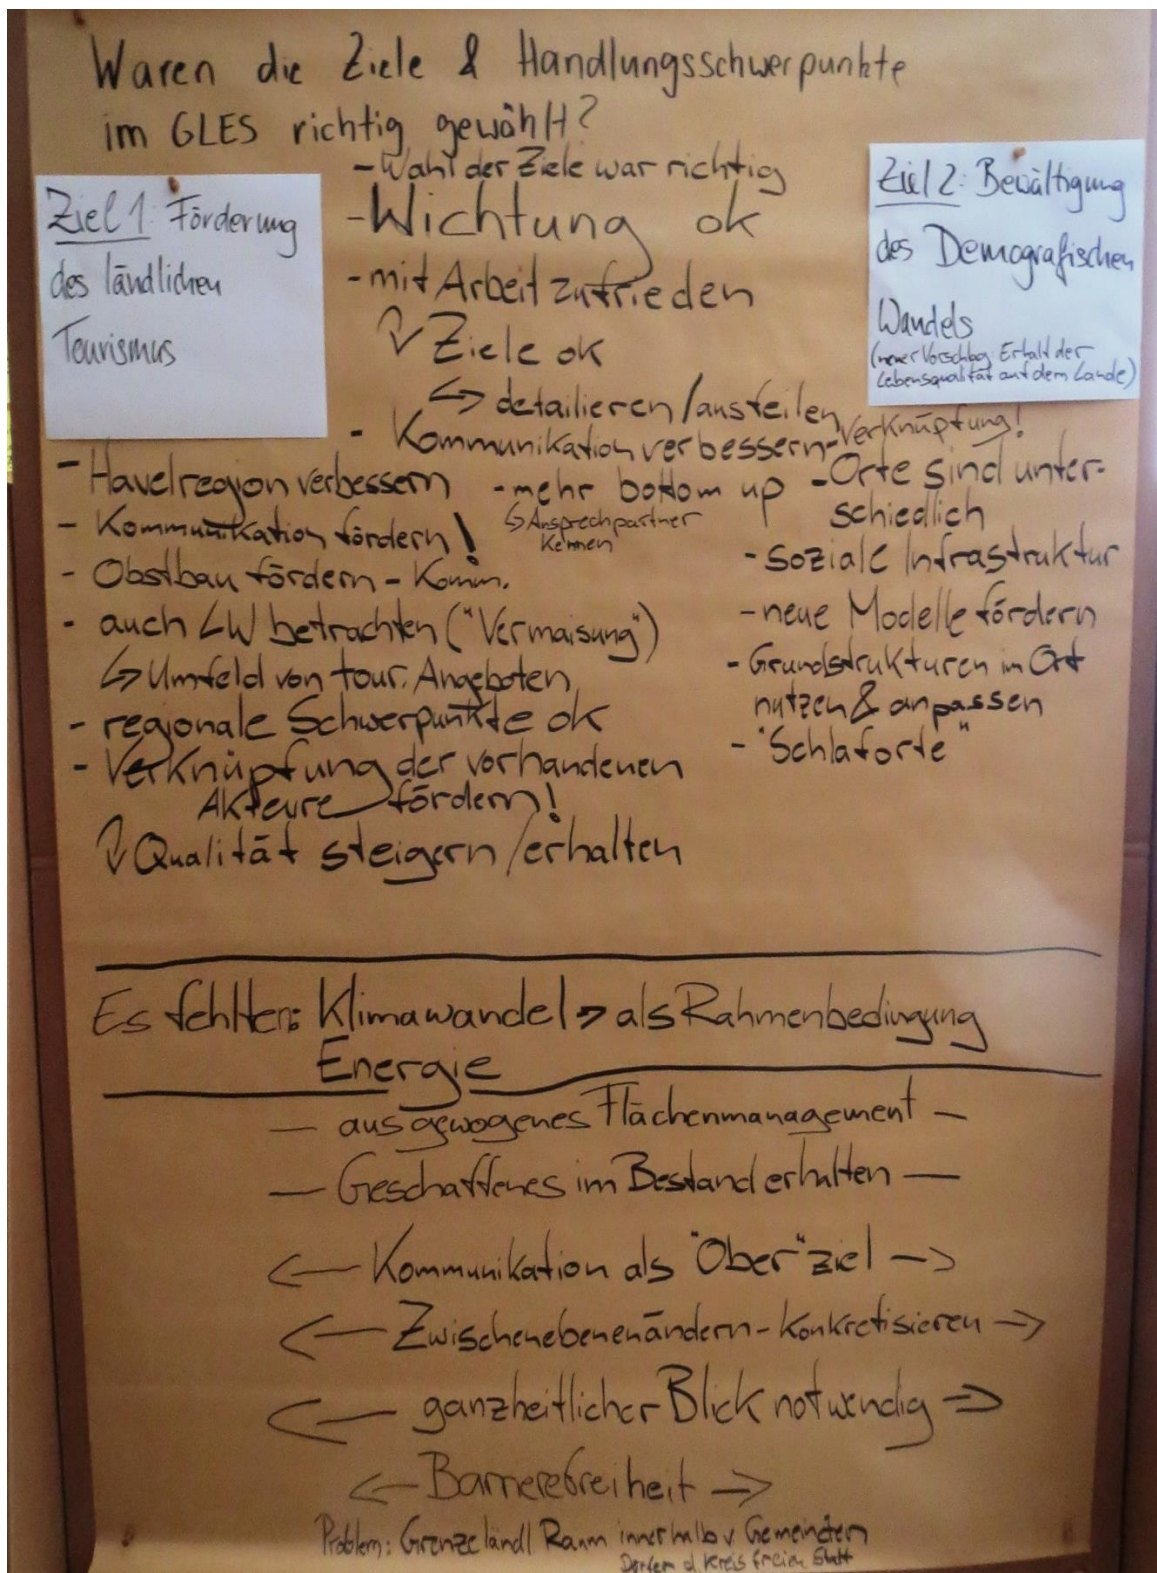 Waren die Ziele & Handlungsschwerpunkte
im GLES richtig gewählt?
Ziel 1: Förderung
des ländlichen
Tourismus
- Wahl der Ziele war richtig
- Wichtung ok
- mit Arbeit zufrieden
Ziele ok
↪ detailieren/austeilen
- Kommunikation verbessern - Verknüpfung!
- mehr bottom up
↳ Ansprechpartner
kennen
Ziel 2: Bewältigung
des Demografischen
Wandels
(neuer Vorschlag Erhalt der
Lebensqualität auf dem Lande)
- Havelregion verbessern
- Kommunikation fördern!
- Obstbau fördern - Komm.
- auch LW betrachten ("Vermaisung")
↳ Umfeld von tour. Angeboten
- regionale Schwerpunkte ok
- Verknüpfung der vorhandenen
Akteure fördern!
Qualität steigern/erhalten
- Orte sind unter-
schiedlich
- soziale Infrastruktur
- neue Modelle fördern
- Grundstrukturen im Ort
nutzen & anpassen
- "Schlaforte"
Es fehlten: Klimawandel → als Rahmenbedingung
Energie
— ausgewogenes Flächenmanagement —
— Geschaffenes im Bestand erhalten —
← Kommunikation als "Ober"ziel →
← Zwischenebenen ändern - konkretisieren →
← ganzheitlicher Blick notwendig →
← Barrierefreiheit →
Problem: Grenze ländl Raum innerhalb v Gemeinden
Dörfern d kreisfreien Stadt